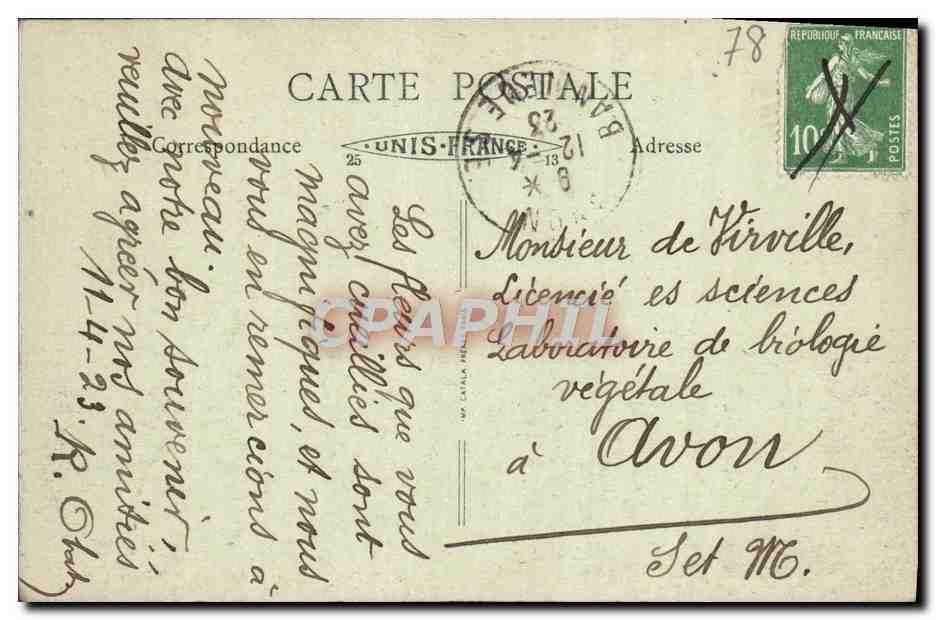 78
REPUBLIQUE FRANÇAISE
10c
POSTES
CARTE POSTALE
Correspondance
25 · UNIS-FRANCE · 13
Adresse
12 -4
23
Les fleurs que vous
avez cuillies sont
magnifiques, et nous
vous en remercions à
nouveau.
avec notre bon souvenir,
veuillez agréer nos amitiés
11-4-23. R.
Monsieur de Virville,
Licencié es sciences
Laboratoire de biologie
végétale
à Avon
Set M.
IMP. CATALA FRÈRES PARIS
CPAPHIL